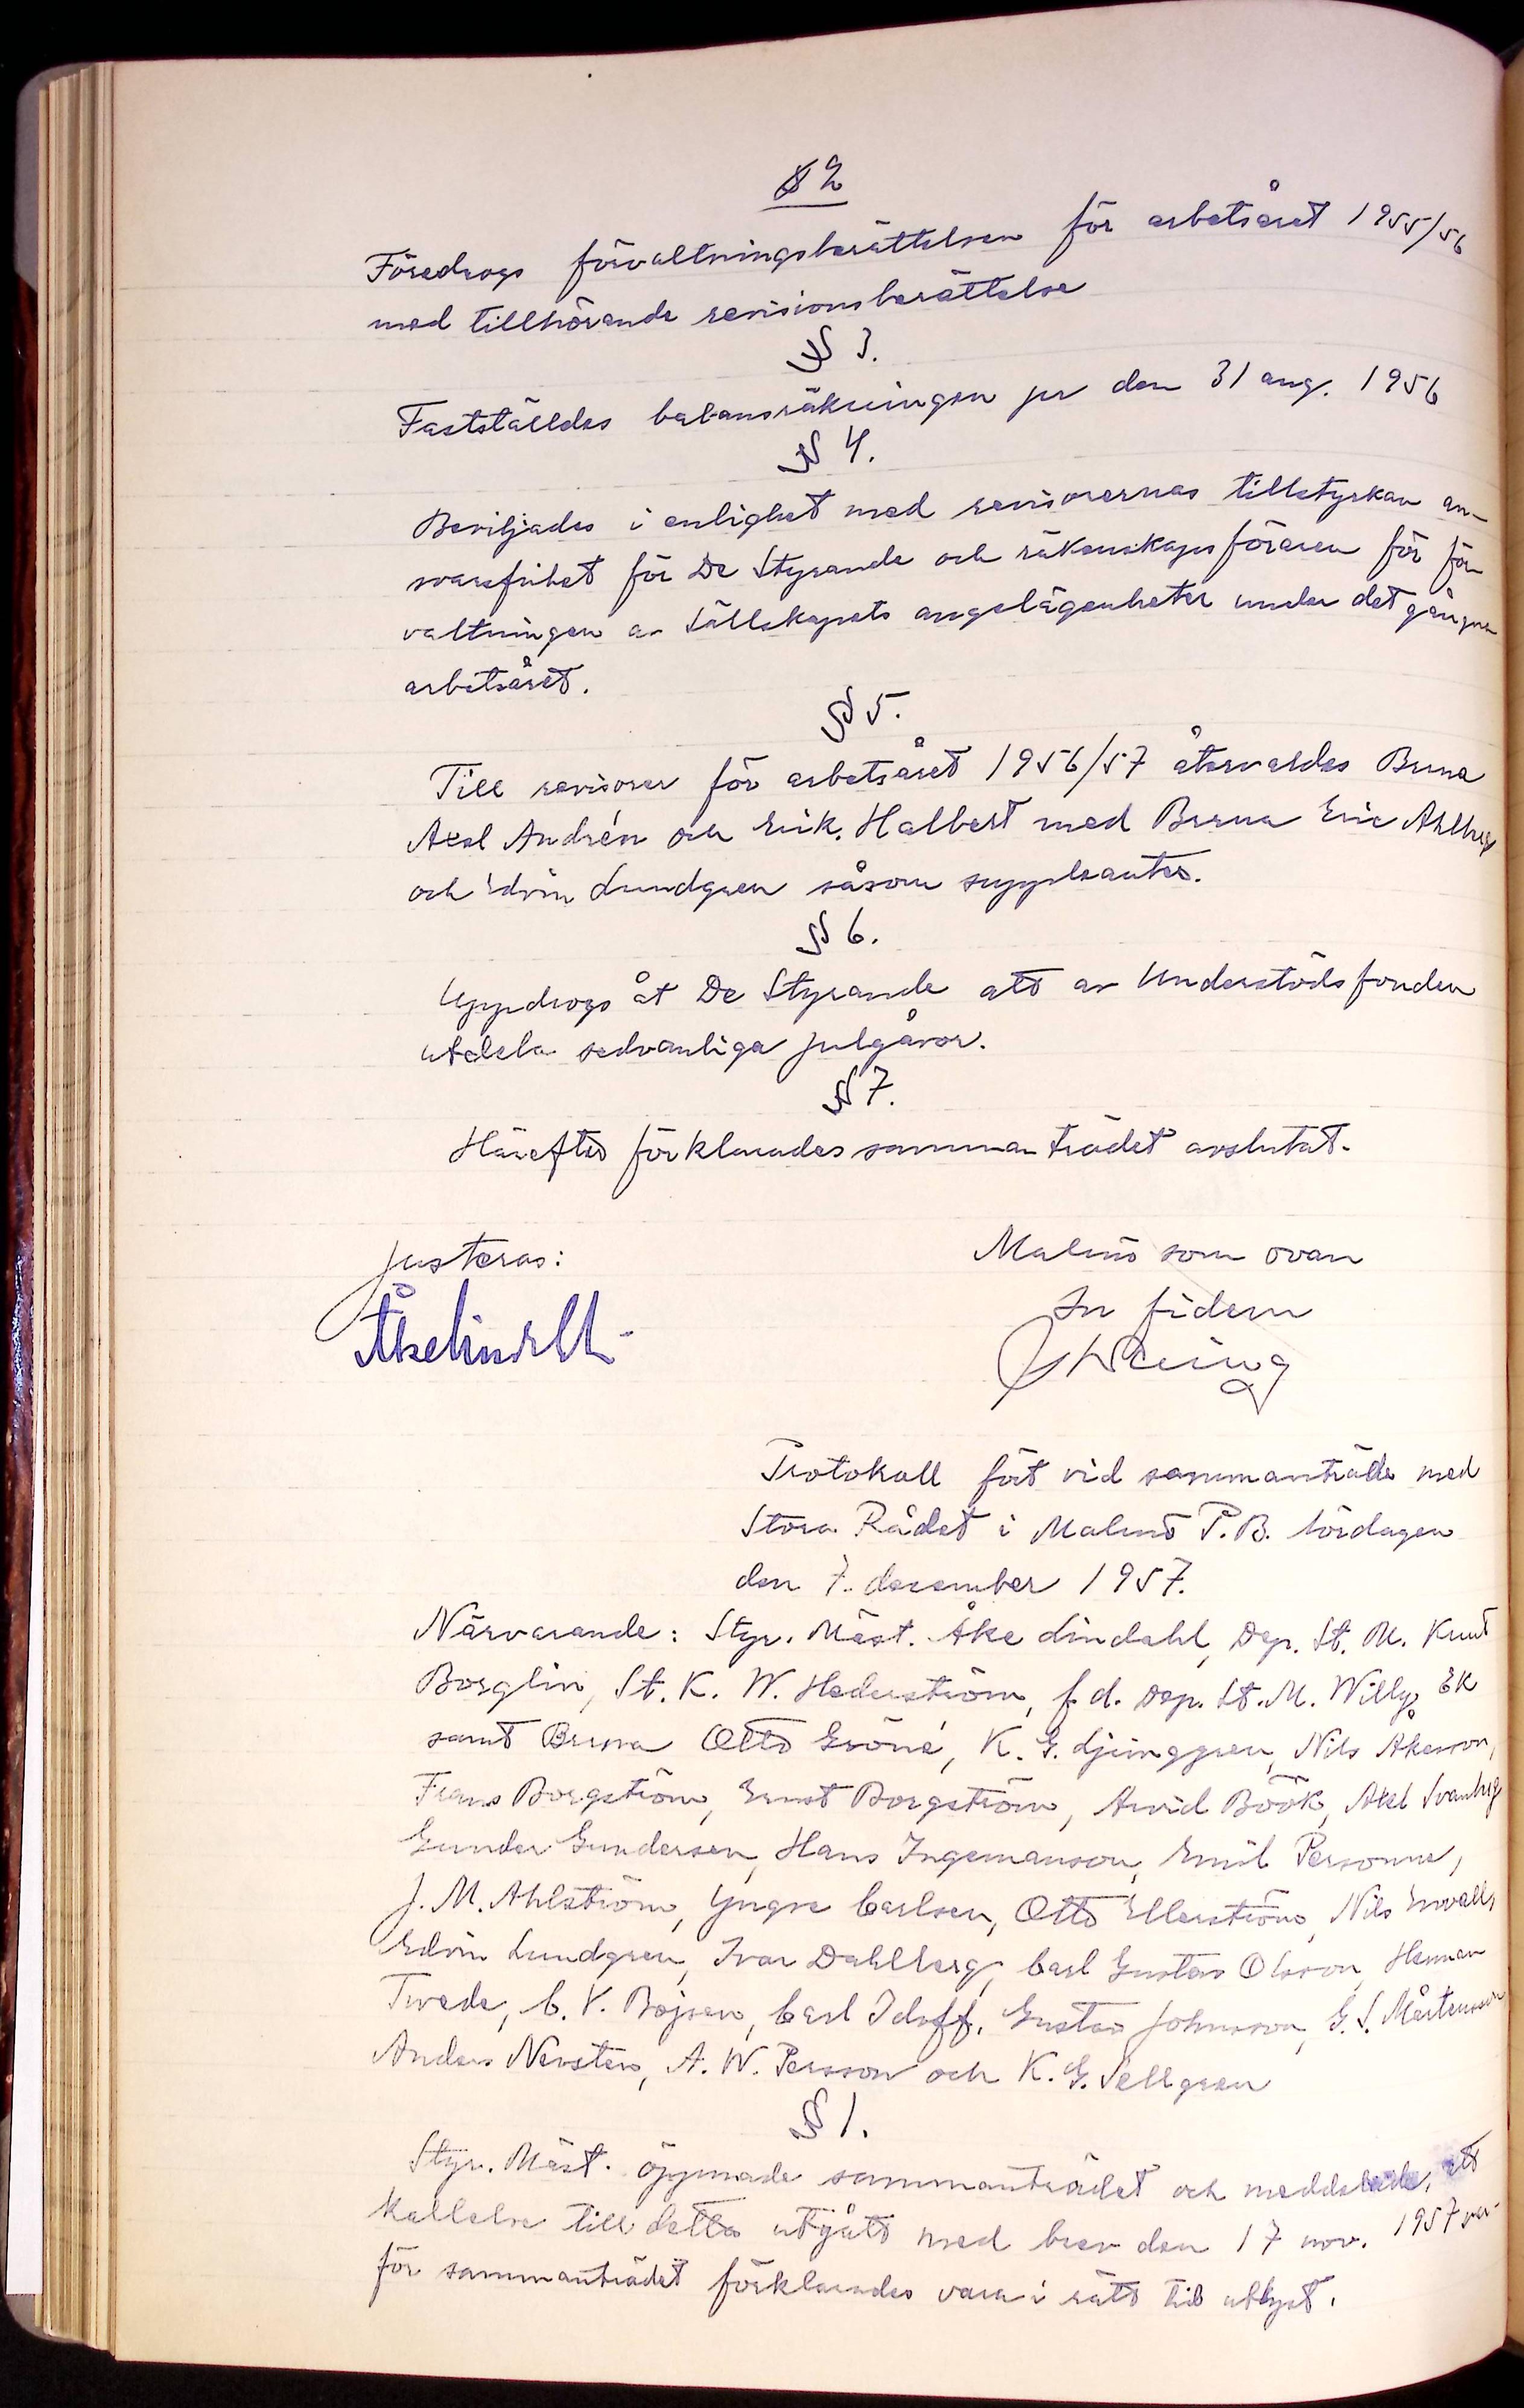 § 2
Föredrogs förvaltningsberättelsen för arbetsåret 1955/56
med tillhörande revisionsberättelse
§ 3.
Fastställdes balansräkningen per den 31 aug. 1956
§ 4.
Beviljades i enlighet med revisorernas tillstyrkan an-
svarsfrihet för De Styrande och räkenskapsföraren för för-
valtningen av Sällskapets angelägenheter under det gångna
arbetsåret.
§ 5.
Till revisorer för arbetsåret 1956/57 återvaldes Brrna
Axel Andrén och Erik Halbert med Brrna Eric Ahlberg
och Edvin Lundgren såsom suppleanter.
§ 6.
Uppdrogs åt De Styrande att av Understödsfonden
utdela sedvanliga julgåvor.
§ 7.
Härefter förklarades sammanträdet avslutat.
Justeras:
Malmö som ovan
In fidem
Protokoll fört vid sammanträde med
Stora Rådet i Malmö P.B. lördagen
den 7. december 1957.
Närvarande: Styr. Mäst. Åke Lindahl, Dep. St. M. Knut
Borglin, St. K. W. Hederström, f.d. Dep. St. M. Willy Ek
samt Brrna Otto Gröné, K. G. Ljunggren, Nils Åkesson,
Frans Borgström, Ernst Borgström, Arvid Böök, Axel Svanberg
Gunder Gundersen, Hans Ingemanson, Emil Personne,
J. M. Ahlström, Yngve Carlsen, Otto Ellerström, Nils
Edvin Lundgren, Ivar Dahlberg, Carl Gustav Olsson, Herman
Twede, C. V. Bojsen, Carl Idoff, Gustav Johnsson, G. S. Mårtensson
Anders Nersten, A. W. Persson och K. G. Sellgren
§ 1.
Styr. Mäst. öppnade sammanträdet och meddelade, att
kallelse till detta utgått med brev den 17 nov. 1957 var-
för sammanträdet förklarades vara i rätt tid utlyst.